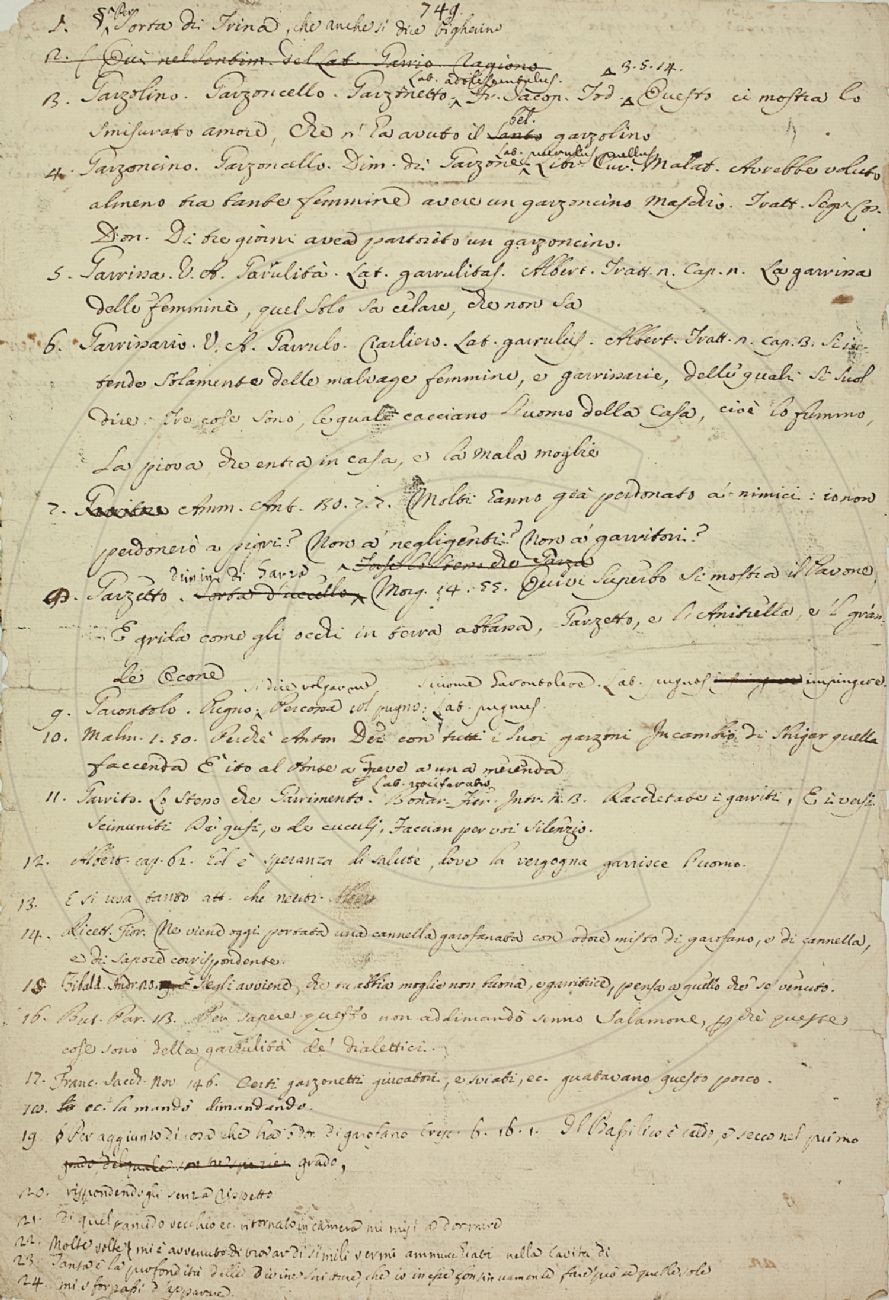 749
1. § Per Sorta di Trina, che anche si dice bigherino
2. Qui nel sentim. del Lat. Garrio Ragiono
Lat. adolescentulus. 3. 5. 14.
3. Garzolino. Garzoncello. Garzonetto. Fr. Jacop. Tod. Questo ci mostra lo
smisurato amore, che n' ha avuto il Santo bel garzolino
4. Garzoncino. Garzoncello. Dim. di Garzone. Lat. puerulus puellus Libr. Cur. Malat. Avrebbe voluto
almeno tra tante femmine avere un garzoncino maschio. Tratt. Segr. Cos.
Don. Di tre giorni avea partorito un garzoncino.
5. Garrina. V. A. Garrulità. Lat. garrulitas. Albert. Tratt. n. Cap. n. La garrina
delle femmine, quel solo sa celare, che non sa
6. Garrinario. V. A. Garrulo. Ciarliero. Lat. garrulus. Albert. Tratt. n. Cap. 13. S'in-
tende solamente delle malvage femmine, e garrinarie, delle quali si suol
dire: Tre cose sono, le quali cacciano l'uomo della casa, cioè lo fummo,
La piova, che entra in casa, e la mala moglie
7. Amm. Ant. 30. 7. 7. Molti hanno già perdonato a' nimici: io non
perdonerò a pigri? Non a' negligenti? Non a' garritori?
dimin. di Garza
8. Garzetto. Sorta d'uccello Morg. 14. 55. Quivi superbo si mostra il Pavone,
E grida come gli occhi in terra abbassa, Garzetto, e l'Anitrella, e 'l gran-
de Ocone
si dice volgarmente Lat. pugnus impingere
9. Garontolo. Pugno; Percossa col pugno; Lat. pugnus.
10. Malm. 1. 50. Perchè Anton Dei con tutti i suoi garzoni In cambio di sbrigar quella
faccenda E' ito al Ponte a Greve a una merenda
Lat. vociferatio
11. Garrito. Lo stesso che Garrimento. Bonar. Fier. Intr. 2. 3. Racchetate i garriti, E i versi
Scimuniti De' gufi, e de' cuculj, Taccian per voi silenzio.
12. Albert. cap. 62. Ed è speranza di salute, dove la vergogna garrisce l'uomo.
13. E si usa tanto att. che neutr.
14. Ricett. Fior. Ne viene oggi portata una cannella garofanata con odore misto di garofano, e di cannella,
e di sapore corrispondente.
15 Tibald. Andr. S'egli avviene, che tu abbia moglie non buona, e garritrice, pensa a quello che se' venuto.
16. But. Par. 13. Per sapere questo non addimandò senno Salamone, perchè queste
cose sono della garrulità de' dialettici.
17. Franc. Sacch. Nov 146. Certi garzonetti giucatori, e sviati, ec. guatavano questo porco.
18. ec. la mandò dimandando.
19 § Per aggiunto di cosa che ha odor. di garofano Cresc. 6. 16. 1. Il Basilico è caldo, e secco nel primo
grado,
20. rispondendogli senza rispetto
21. Di quel ramedo vecchio ec. ritornato in camera mi misi a dormire
22. Molte volte mi è avvenuto di trovar di simili vermi ammucchiati nella cavita di
23. Tanta è la profondità delle Divine Scritture, che io in esse continuamente
24. mi sforzassi d'apparare